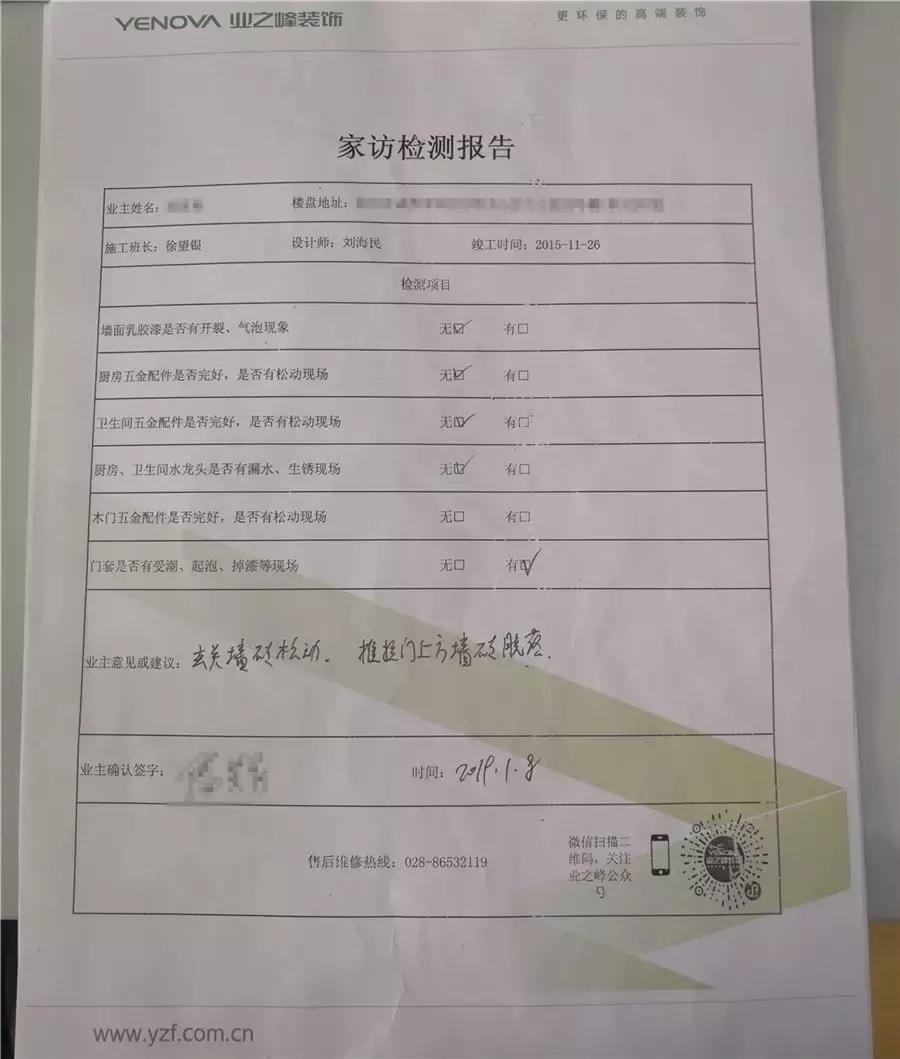 YENOVA 业之峰装饰 更环保的高端装饰
家访检测报告
业主姓名: 楼盘地址:
施工班长: 徐望银 设计师: 刘海民 竣工时间: 2015-11-26
检测项目
墙面乳胶漆是否有开裂、气泡现象 无☑ 有□
厨房五金配件是否完好，是否有松动现场 无☑ 有□
卫生间五金配件是否完好，是否有松动现场 无☑ 有□
厨房、卫生间水龙头是否有漏水、生锈现场 无☑ 有□
木门五金配件是否完好，是否有松动现场 无□ 有□
门套是否有受潮、起泡、掉漆等现场 无□ 有☑
业主意见或建议: 玄关墙砖松动. 推拉门上方墙砖脱落.
业主确认签字: 时间: 2019.1.8
售后维修热线: 028-86532119
微信扫描二
维码，关注
业之峰公众
号
业之峰装饰
www.yzf.com.cn